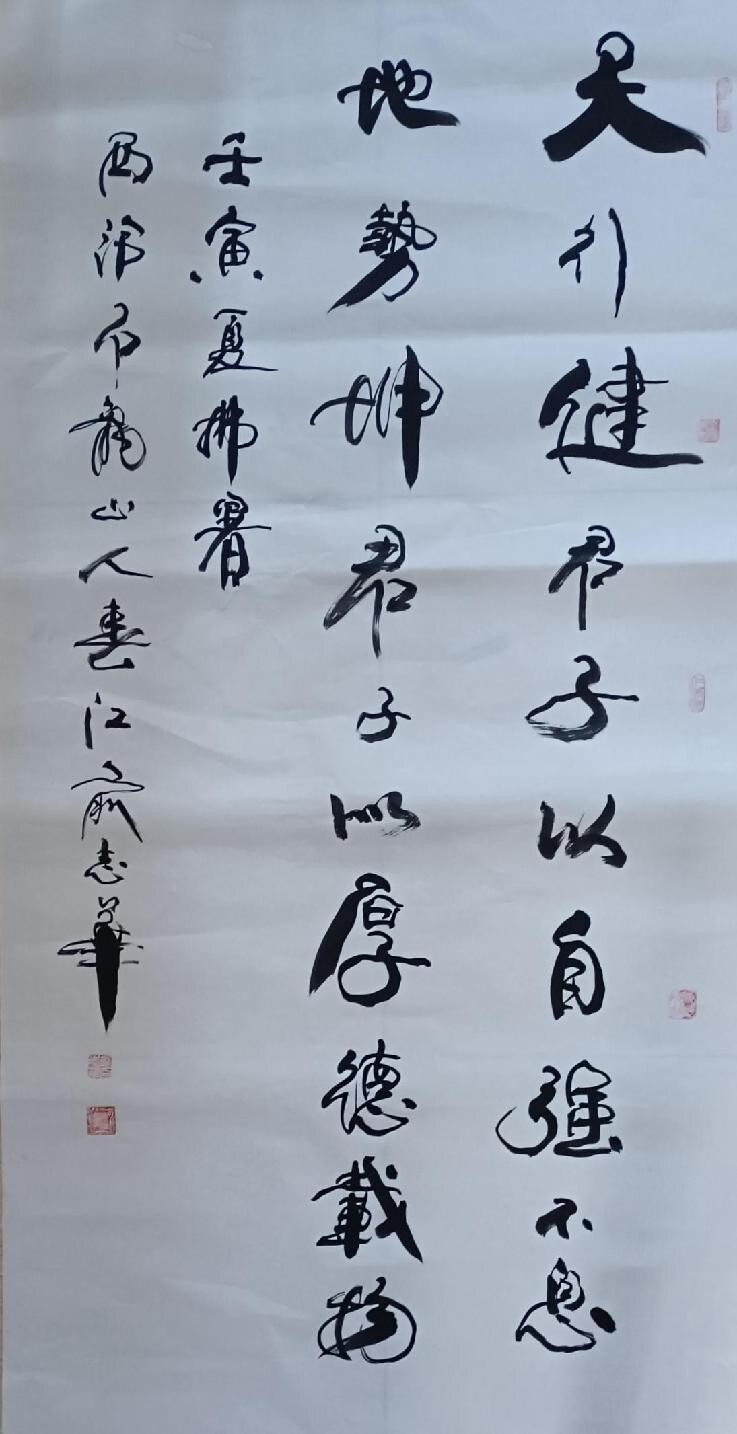 天行健君子以自强不息
地勢坤君子以厚德載物
壬寅夏拂暑
西泠印龍山人春江俞志華